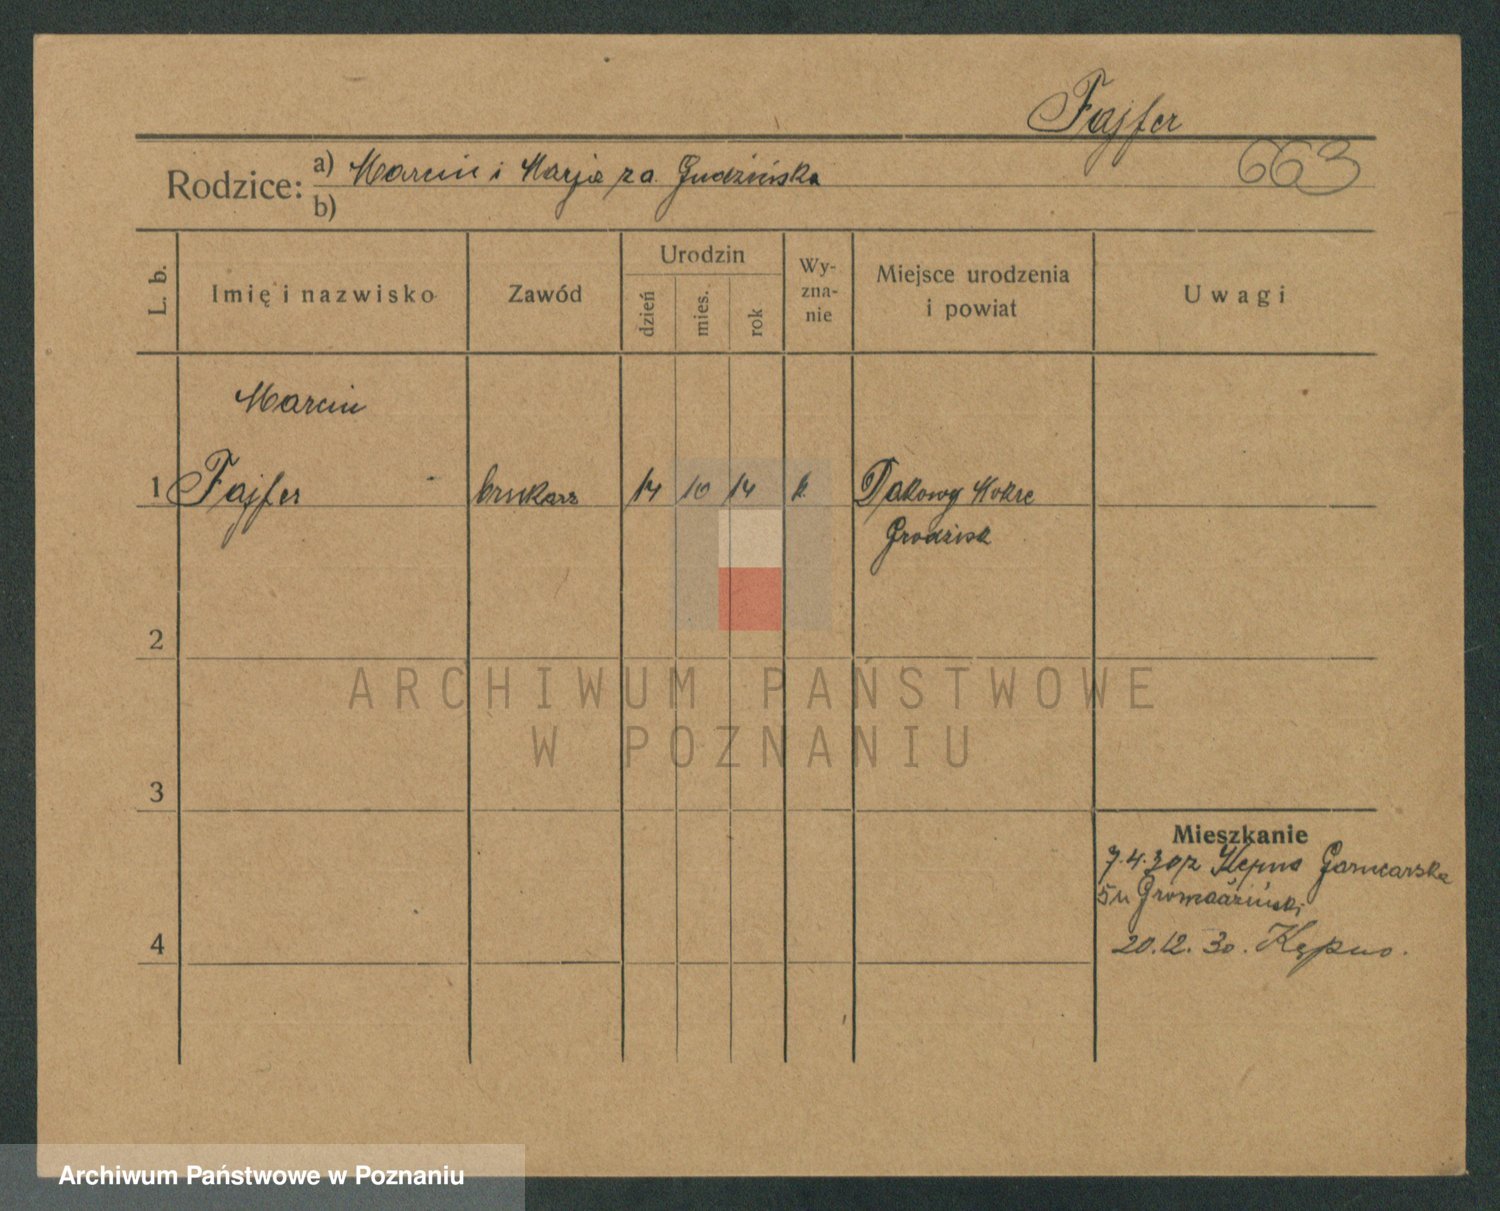 Fajfer
663
Rodzice: a) Marcin i Marja za. Gudzińska
b)
L. b.
Imię i nazwisko
Zawód
Urodzin
dzień
mies.
rok
Wy-
zna-
nie
Miejsce urodzenia
i powiat
Uwagi
Marcin
1 Fajfer brukarz 14 10 14 k. Dakowy Mokre
Grodzisk
2
ARCHIWUM PAŃSTWOWE
W POZNANIU
3
Mieszkanie
7.4.30 z Kępna Garncarska
5 u Gromadziński
4
20.12.30. Kępno.
Archiwum Państwowe w Poznaniu